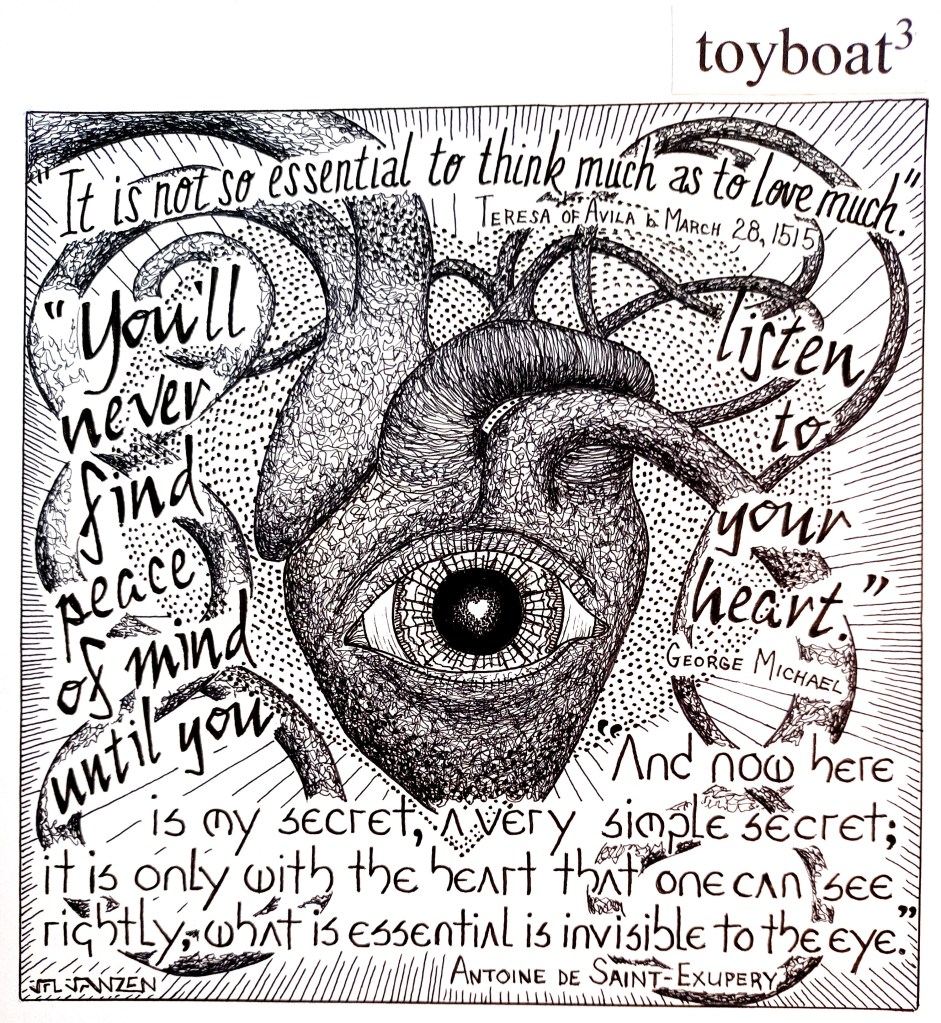 toyboat³
"It is not so essential to think much as to love much."
TERESA OF AVILA b MARCH 28, 1515
"You'll
never
find
peace
of mind
until you
listen
to
your
heart."
GEORGE MICHAEL
"And now here
is my secret, a very simple secret;
it is only with the heart that one can see
rightly; what is essential is invisible to the eye."
ANTOINE DE SAINT-EXUPERY
JFL JANZEN